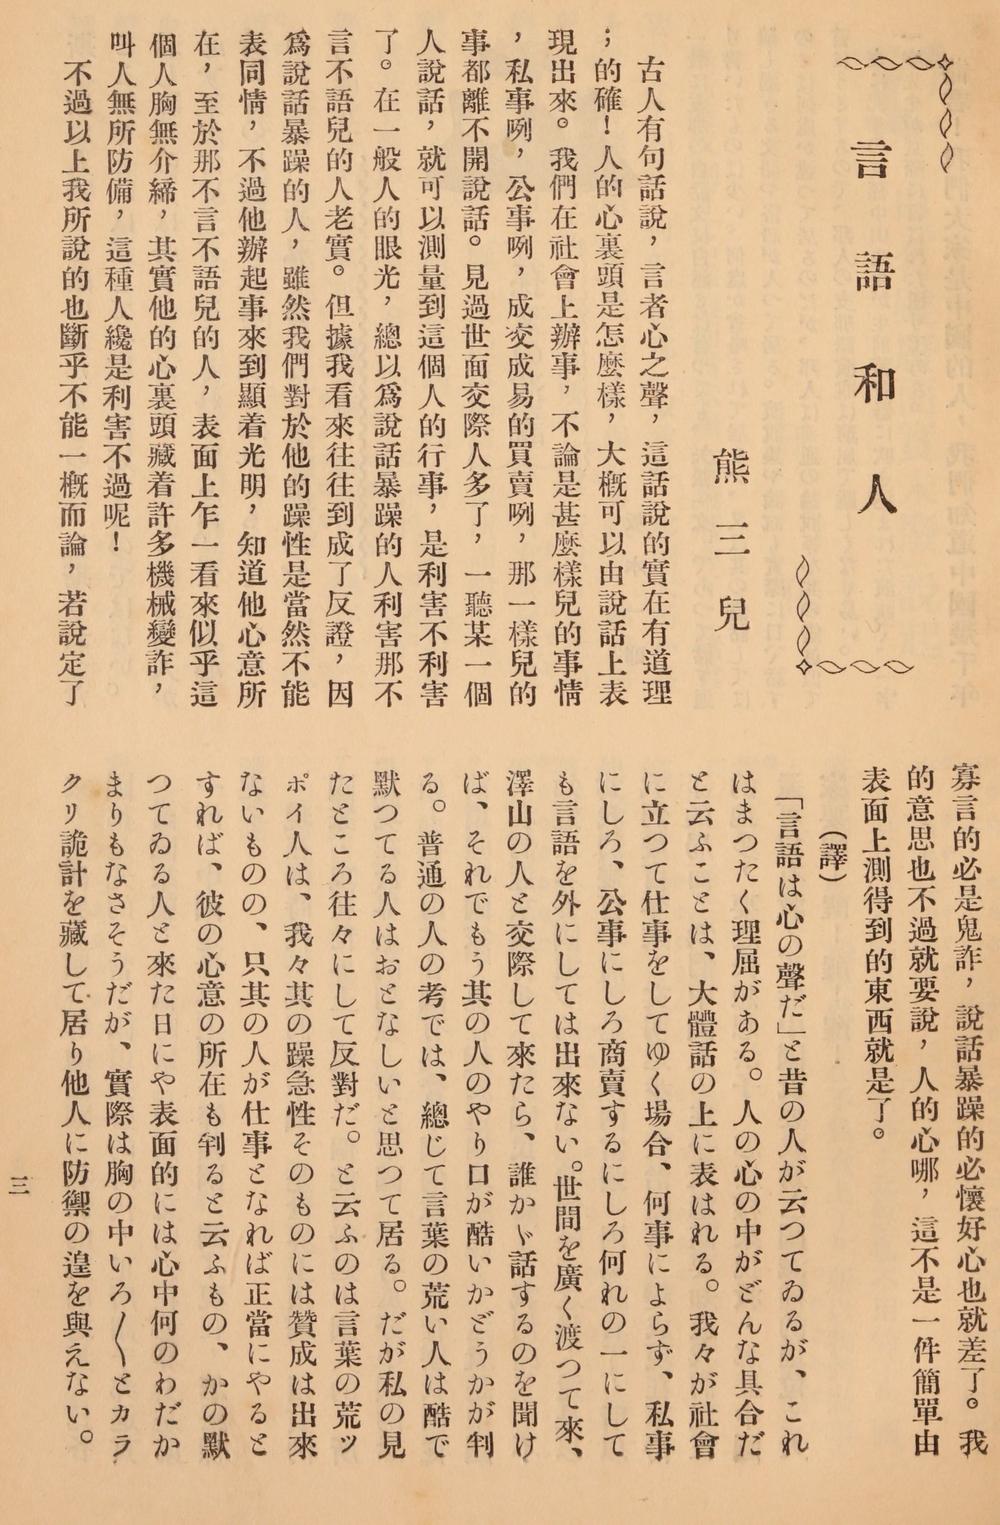 言語和人
熊三兒
古人有句話說，言者心之聲，這話說的實在有道理
；的確！人的心裏頭是怎麼樣，大槪可以由說話上表
現出來。我們在社會上辦事，不論是甚麼樣兒的事情
，私事咧，公事咧，成交成易的買賣咧，那一樣兒的
事都離不開說話。見過世面交際人多了，一聽某一個
人說話，就可以測量到這個人的行事，是利害不利害
了。在一般人的眼光，總以爲說話暴躁的人利害那不
言不語兒的人老實。但據我看來往往到成了反證，因
爲說話暴躁的人，雖然我們對於他的躁性是當然不能
表同情，不過他辦起事來到顯着光明，知道他心意所
在，至於那不言不語兒的人，表面上乍一看來似乎這
個人胸無介締，其實他的心裏頭藏着許多機械變詐，
叫人無所防備，這種人纔是利害不過呢！
不過以上我所說的也斷乎不能一槪而論，若說定了
寡言的必是鬼詐，說話暴躁的必懷好心也就差了。我
的意思也不過就要說，人的心哪，這不是一件簡單由
表面上測得到的東西就是了。
（譯）
「言語は心の聲だ」と昔の人が云つてゐるが、これ
はまつたく理屈がある。人の心の中がどんな具合だ
と云ふことは、大體話の上に表はれる。我々が社會
に立つて仕事をしてゆく場合、何事によらず、私事
にしろ、公事にしろ商賣するにしろ何れの一にして
も言語を外にしては出來ない。世間を廣く渡つて來、
澤山の人と交際して來たら、誰かゞ話するのを聞け
ば、それでもう其の人のやり口が酷いかどうかが判
る。普通の人の考では、總じて言葉の荒い人は酷で
默つてる人はおとなしいと思つて居る。だが私の見
たところ往々にして反對だ。と云ふのは言葉の荒ッ
ポイ人は、我々其の躁急性そのものには賛成は出來
ないものの、只其の人が仕事となれば正當にやると
すれば、彼の心意の所在も判ると云ふもの、かの默
つてゐる人と來た日にや表面的には心中何のわだか
まりもなさそうだが、實際は胸の中いろ〱とカラ
クリ詭計を藏して居り他人に防禦の遑を與えない。
三